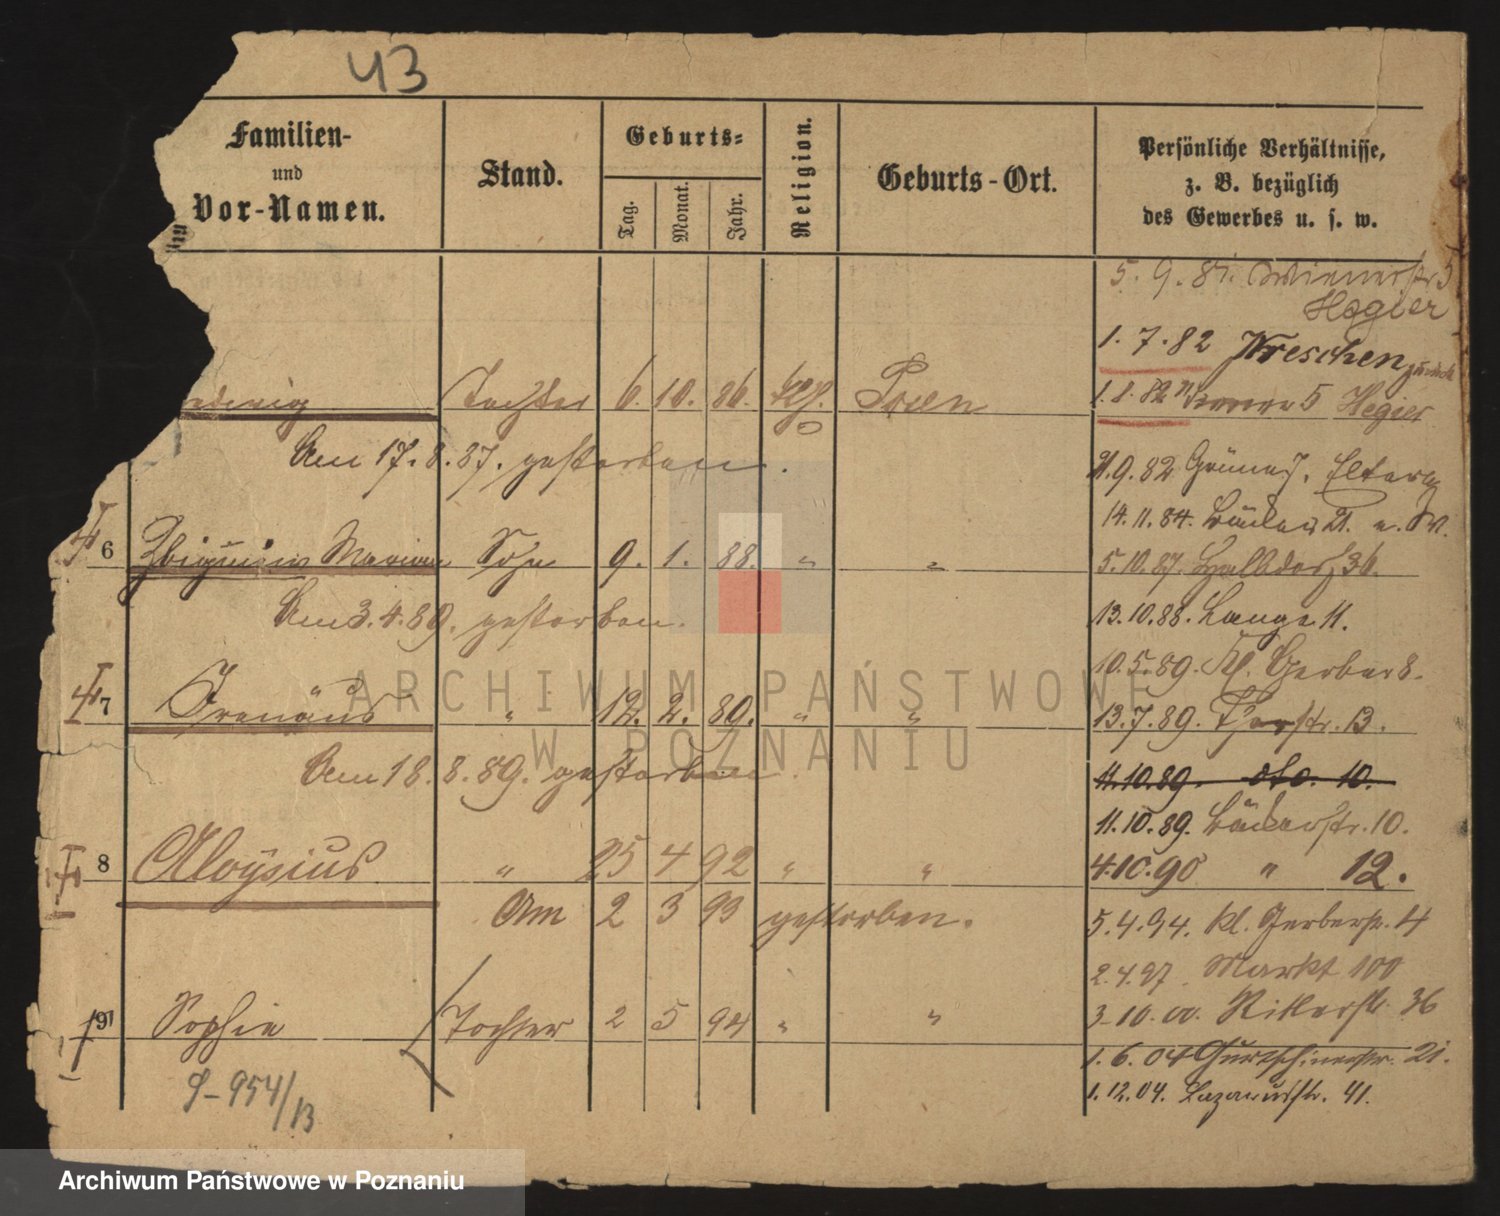 43
Familien-
und
Vor-Namen.
Stand.
Geburts-
Tag.
Monat.
Jahr.
Religion.
Geburts-Ort.
Persönliche Verhältnisse,
z. B. bezüglich
des Gewerbes u. s. w.
5. 9. 81. 5
Hegier
1. 7. 82 Wreschen zurück
edwig Tochter 6. 10. 86. kth. Posen
5 Hegier
Am 17. 8. 87. gestorben.
21. 9. 82
14. 11. 84. Bäcker 21.
6 Zbigniew Marian Sohn 9. 1. 88. " "
5. 10. 87. Halbdorf 36.
Am 3. 4. 89. gestorben.
13. 10. 88. Lange 11.
10. 5. 89. Kl. Gerber 8.
7 Irenäus " 12. 2. 89. " "
13. 7. 89. 13.
Am 18. 8. 89. gestorben.
11. 10. 89. dto. 10.
11. 10. 89. Bäckerstr. 10.
8 Aloysius " 25 4 92 " "
4. 10. 90 " 12.
Am 2 3 93 gestorben.
5. 4. 94. Kl. Gerberstr. 4
2. 4. 97. Markt 100
9 Sophie Tochter 2 5 94 " "
3. 10. 00. Ritterstr. 36
1. 6. 04 Gurtschinerstr. 21.
1. 12. 04. Lazarusstr. 41.
S-954/13
ARCHIWUM PAŃSTWOWE
W POZNANIU
Archiwum Państwowe w Poznaniu